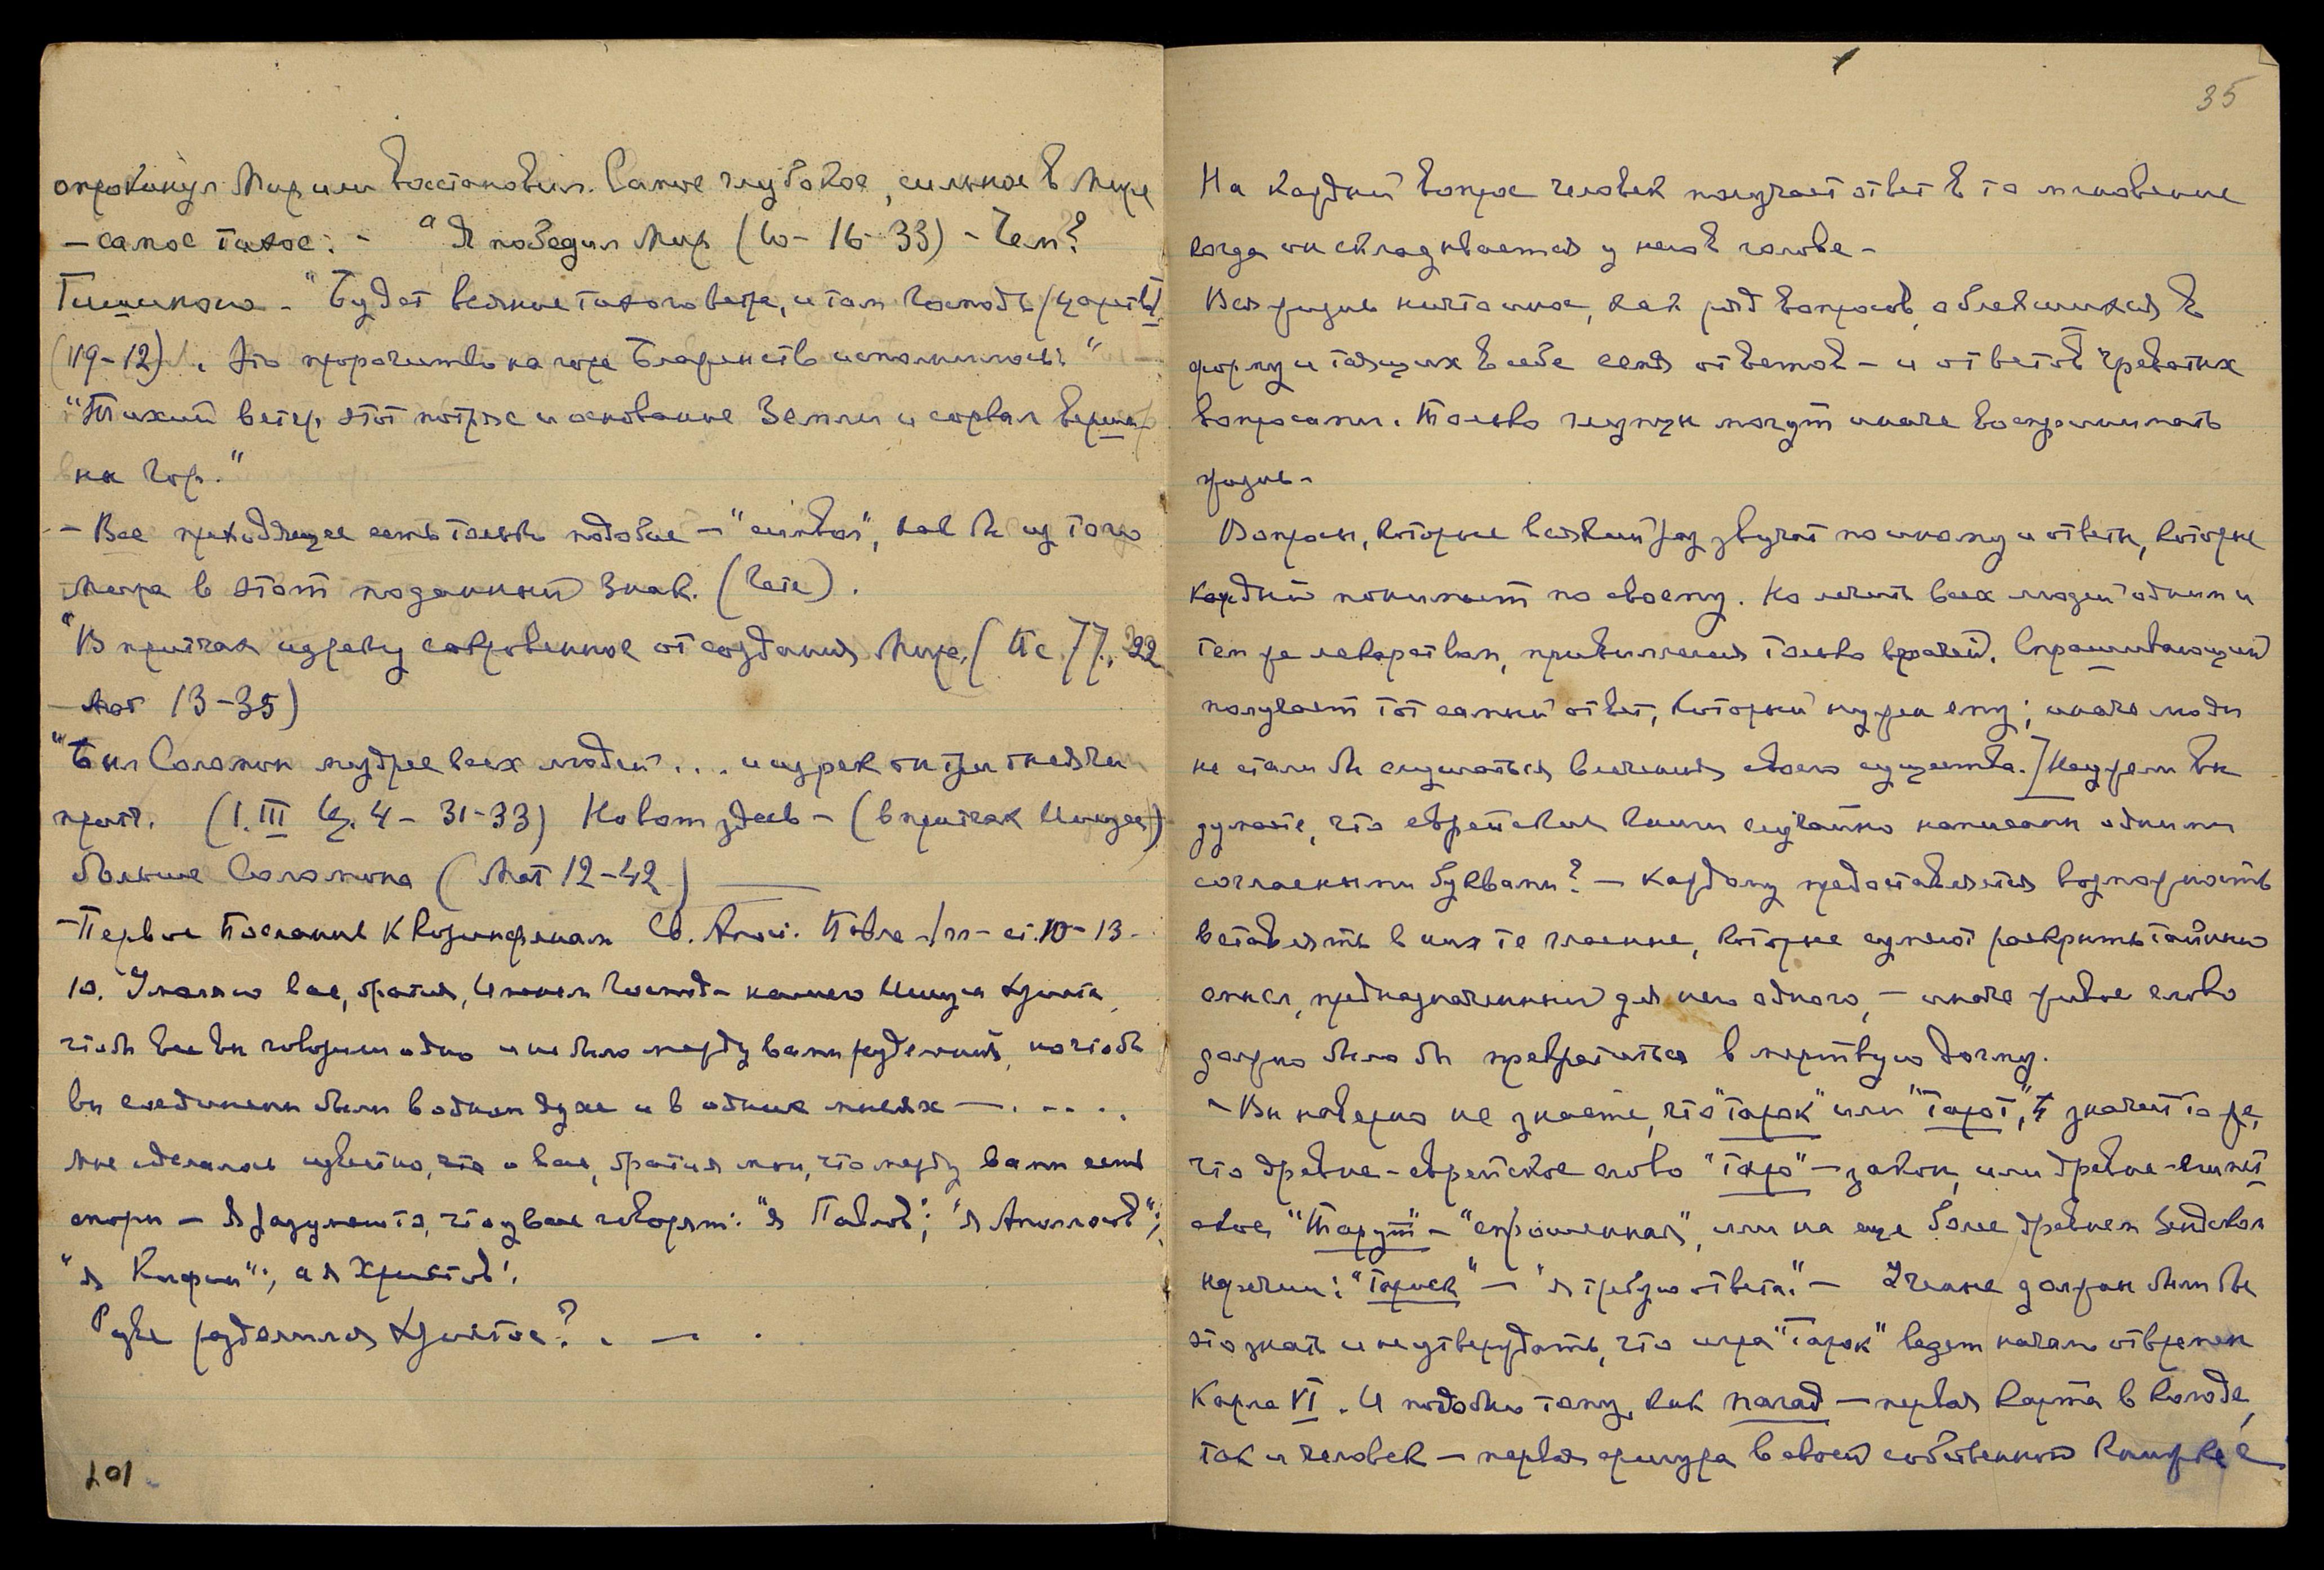 опрокинул Мир или восстановил. Самое глубокое, сильное в Мире
— самое тихое. - "Я победил Мир (Ио - 16-33) - Чем?
Тишиною - "Будет веяние тихого ветра, и там Господь (3 царств
(119-12). Это пророчество на горе Блаженств исполнилось."
"Тихий ветер этот потряс и основание Земли и сорвал верши
ны гор."
- Все преходящее есть только подобие — "символ", как бы из того
Мира в этот поданный знак. (Гете).
"В притчах изреку сокровенное от создания Мира. (Пс 77, 22
— Мат 13-35)
"Был Соломон мудрее всех людей .... и изрек он три тысячи
притч. (1. III Ц. 4 - 31-33) Но вот здесь - (в притчах Иисуса)
больше Соломона (Мат 12-42)
- Первое Послание к Коринфянам Св. Апос. Павла - гл - ст. 10-13 -
10. Умоляю вас, братия, Именем Господа нашего Иисуса Христа,
чтоб все вы говорили одно и не было между вами разделений, но чтобы
вы соединены были в одном духе и в одних мыслях — . - - . .
Мне сделалось известно, что о вас, братия мои, что между вами есть
споры — Я разумею то, что у вас говорят: "я Павлов"; "я Аполлосов";
"я Кифин"; а я Христов".
Разве разделился Христос? . — .
101
35
На каждый вопрос человек получает ответ в то мгновение
когда он складывается у него в голове -
Вся жизнь ни что иное, как ряд вопросов, облекшихся в
форму и таящих в себе семя ответов - и ответов чреватых
вопросами. Только глупцы могут иначе воспринимать
жизнь -
Вопросы, которые всякий раз звучат по иному и ответы, которые
каждый понимает по своему. Но лечить всех людей одним и
тем же лекарством, привилегия только врачей. Спрашивающий
получает тот самый ответ, который нужен ему; иначе люди
не стали бы слушаться влечения своего существа. / Неужели вы
думаете, что еврейские книги случайно написаны одними
согласными буквами? — Каждому предоставляется возможность
вставлять в них те гласные, которые сумеют раскрыть тайный
смысл, предназначенный для него одного, — иначе живое слово
должно было бы превратиться в мертвую догму.
- Вы наверно не знаете, что "тарок" или "Тарот", значит то же,
что древне-еврейское слово "Таро" — закон, или древне-египет
ское, "Тарут" - "спрошенная", или на еще более древнем Зендском
наречии: "Тариск" — "я требую ответа." — Ученые должны были бы
это знать и не утверждать, что игра "Тарок" ведет начало от времен
Карла VI. И подобно тому, как пагад — первая карта в колоде,
так и человек — первая фигура в своей собственной книжке с